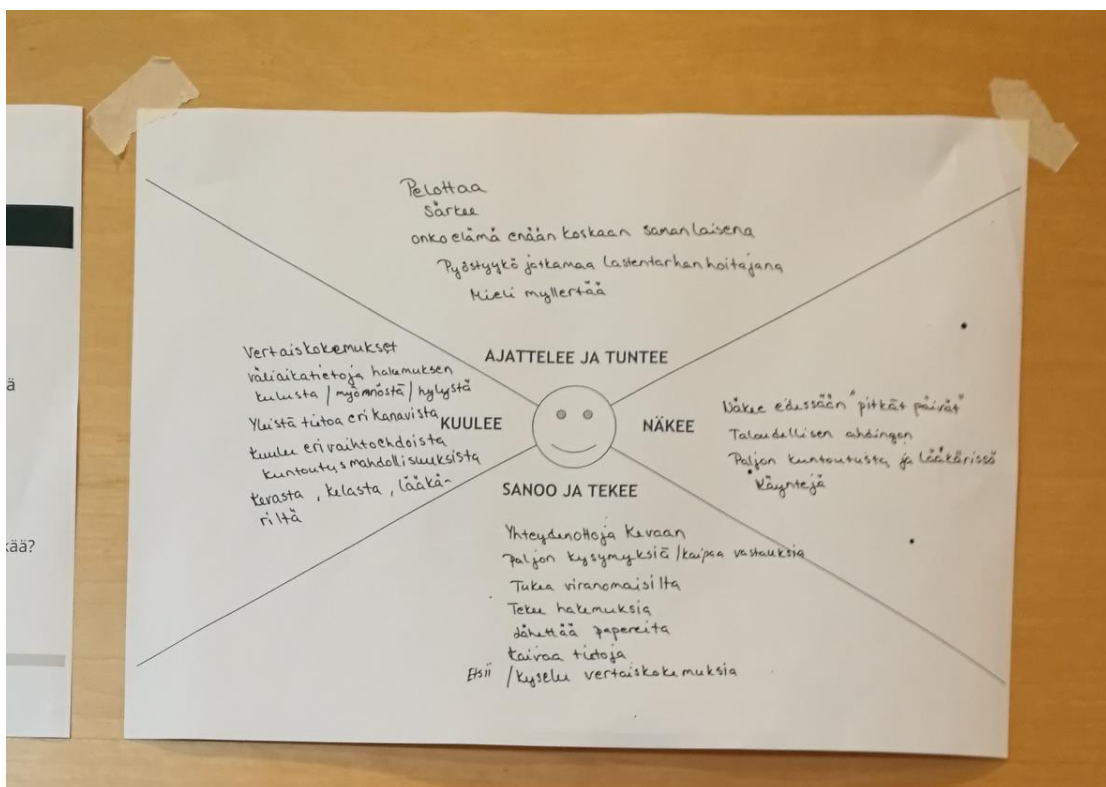 Pelottaa
Särkee
onko elämä enään koskaan samanlaisena
Pyöstyykö jatkamaa lastentarhanhoitajana
Mieli myllertää
AJATTELEE JA TUNTEE
Vertaiskokemukset
väliaikatietoja hakemuksen
kulusta / myönnöstä / hylystä
Yleistä tietoa eri kanavista
kuulee eri vaihtoehdoista
kuntoutusmahdollisuuksista
kevasta, kelasta, lääkä-
riltä
KUULEE
NÄKEE
Näkee edessään "pitkät päivät"
Taloudellisen ahdingon
Paljon kuntoutusta ja lääkärissä
käyntejä
SANOO JA TEKEE
Yhteydenottoja Kevaan
Paljon kysymyksiä / kaipaa vastauksia
Tukea viranomaisilta
Tekee hakemuksia
Lähettää papereita
Kaivaa tietoja
Etsii / kyselee vertaiskokemuksia
ä
kää?